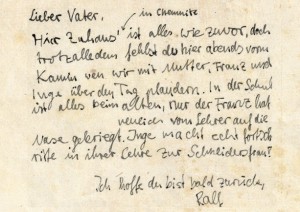 Lieber Vater,
in Chemnitz
Hier Zuhaus' ist alles wie zuvor, doch
trotzalledem fehlst du hier abends vorm
Kamin wen wir mit Mutter, Franz und
Inge über den Tag plaudern. In der Schul
ist alles beim alten, nur der Franz hat
neulich vom Lehrer auf die
Nase gekriegt. Inge macht echt fortsch
ritte in ihrer Lehre zur Schneidersfrau!
Ich hoffe du bist bald zurück,
Ralf